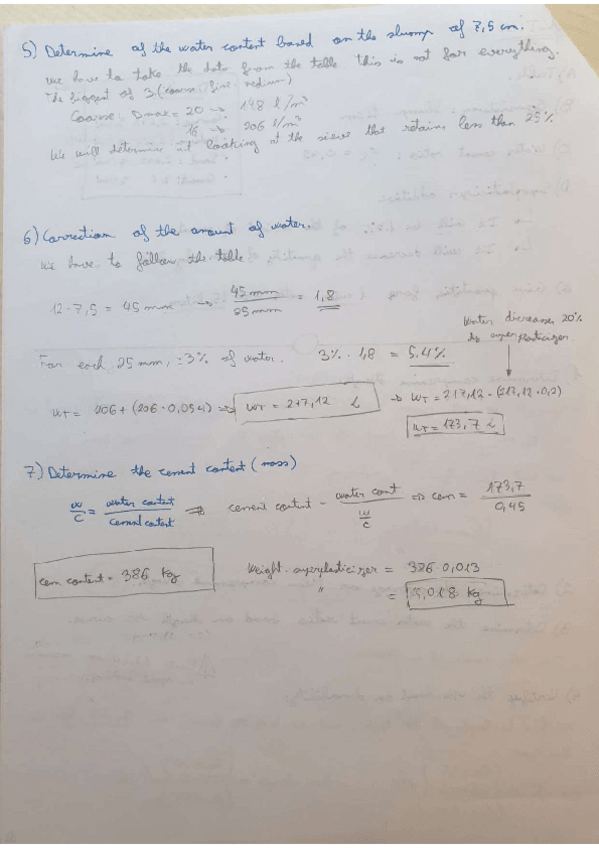 5) Determine of the water content based on the slump of 7,5 cm.
We have to take the data from the table this is not for everything.
The biggest of 3 (coarse, fine, medium)
Coarse: Dmax = 20 → 198 l/m³
16 → 206 l/m³
We will determine it looking at the sieve that retains less than 25%
6) Correction of the amount of water.
We have to follow the table
12 - 7,5 = 45 mm → 45 mm / 25 mm = 1,8
Water decrease 20%
by superplasticizer
For each 25 mm, ±3% of water. 3% · 1,8 = 5.4%
WT = 206 + (206 · 0,054) ⇒ WT = 217,12 L → WT = 217,12 - (217,12 · 0,2)
WT = 173,7 L
7) Determine the cement content (mass)
w/c = water content / cement content ⇒ cement content = water cont / w/c ⇒ cem = 173,7 / 0,45
cem content = 386 kg
Weight superplasticizer = 386 · 0,013
" = 5,018 kg